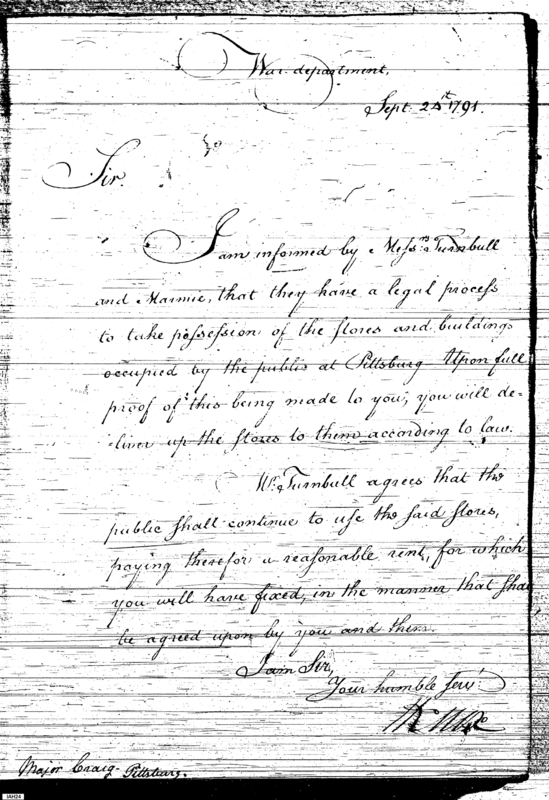 War department,
Sept. 24th 1791.
Sir.
I am informed by Messrs. Turnbull
and Marmie, that they have a legal process
to take possession of the stores and buildings
occupied by the public at Pittsburg Upon full
proof of this being made to you, you will de-
liver up the stores to them according to law.
Mr. Turnbull agrees that the
public shall continue to use the said stores,
paying therefor a reasonable rent, for which
you will have fixed, in the manner that shall
be agreed upon by you and them.
I am Sir,
Your humble servt
HKnox
Major Craig. Pittsburg.
IAH24